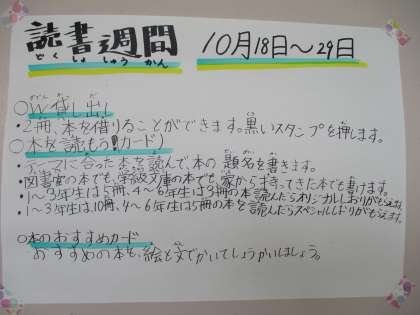 読書週間 10月18日～29日
どくしょしゅうかん
○W貸し出し
・2冊、本を借りることができます。黒いスタンプを押します。
○本を読もう!カード
・テーマに合った本を読んで、本の題名を書きます。
・図書室の本でも、学級文庫の本でも、家から持ってきた本でも書けます。
・1～3年生は5冊、4～6年生は3冊の本を読んだらオリジナルしおりがもらえます。
・1～3年生は10冊、4～6年生は5冊の本を読んだらスペシャルしおりがもらえます。
○本のおすすめカード
おすすめの本を、絵と文でかいてしょうかいしましょう。